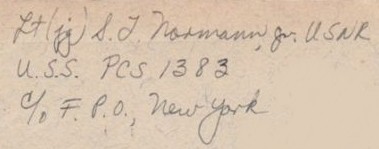 Lt (jg) S. J. Normann, Jr. USNR
U.S.S. PCS 1383
c/o F. P. O., New York